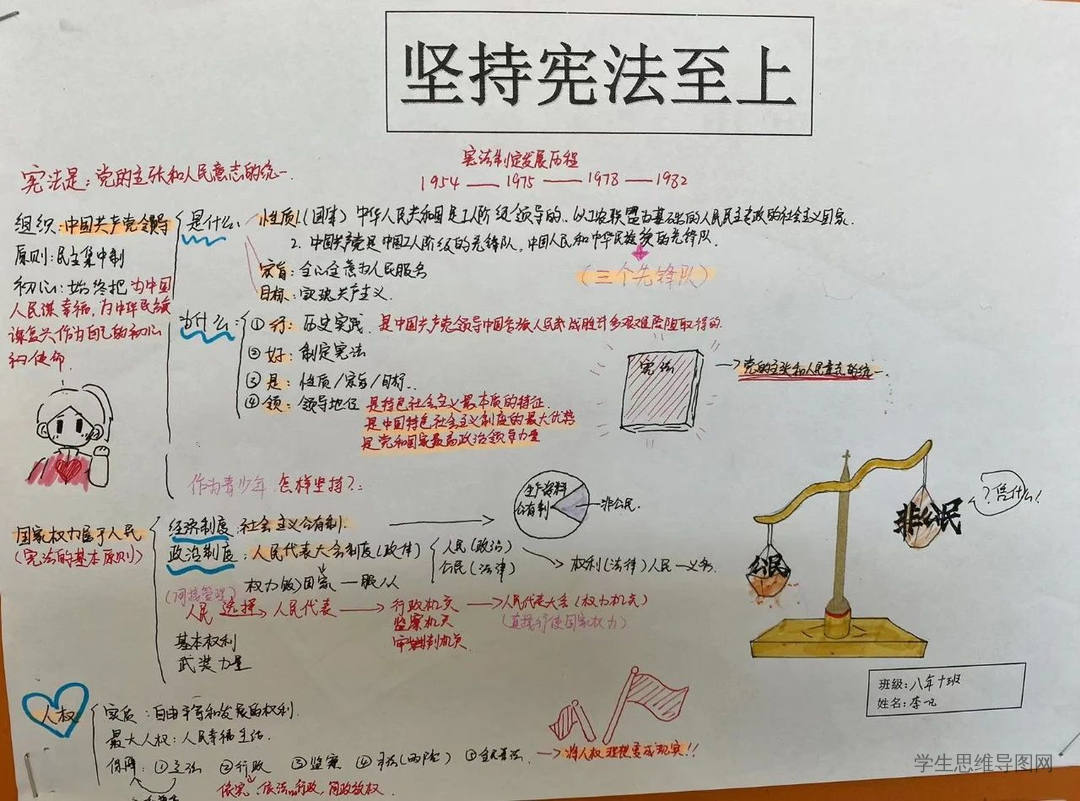 坚持宪法至上
宪法是：党的主张和人民意志的统一.
宪法制定发展历程
1954 — 1975 — 1978 — 1982
组织：中国共产党领导
原则：民主集中制
初心：始终把为中国
人民谋幸福，为中华民族
谋复兴作为自己的初心
和使命.
是什么：
性质1.(国体) 中华人民共和国是工人阶级领导的，以工农联盟为基础的人民民主专政的社会主义国家.
2. 中国共产党是中国工人阶级的先锋队，中国人民和中华民族的先锋队.
(三个先锋队)
宗旨：全心全意为人民服务
目标：实现共产主义.
为什么：
① 行：历史实践. 是中国共产党领导中国各族人民战胜许多艰难险阻取得的.
② 好：制定宪法
③ 是：性质/宗旨/目标.
④ 领：领导地位 是特色社会主义最本质的特征.
是中国特色社会主义制度的最大优势
是党和国家最高政治领导力量
宪法
党的主张和人民意志的统一.
作为青少年 怎样坚持?：
国家权力属于人民
(宪法的基本原则)
经济制度：社会主义公有制.
生产资料
公有制
非公民.
政治制度：人民代表大会制度(政体)
人民(政治)
公民(法律)
权利(法律) 人民一义务.
人民 选择 人民代表
行政机关
监察机关
审判机关
人民代表大会(权力机关)
(直接行使国家权力)
基本权利
武装力量
非公民
公民
?凭什么!
班级：八年十班
姓名：李
人权
实质：自由平等和发展的权利.
最大人权：人民幸福生活.
保障：①立法 ②行政 ③监察 ④司法(两院)
依宪 依法行政，简政放权.
将人权 变成现实!!
学生思维导图网